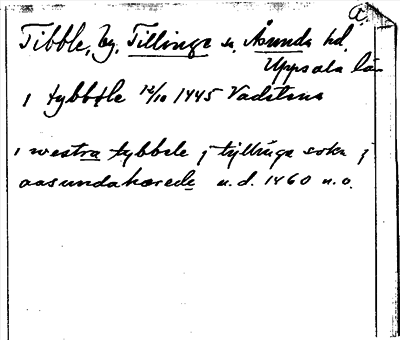 a.
Tibble, by, Tillinge sn, Åsunda hd.
Uppsala län
i tybbřle 12/10 1445 Vadstena
i westra tybbele j tyllinga sokn j
aasundahærede u.d. 1460 u.o.